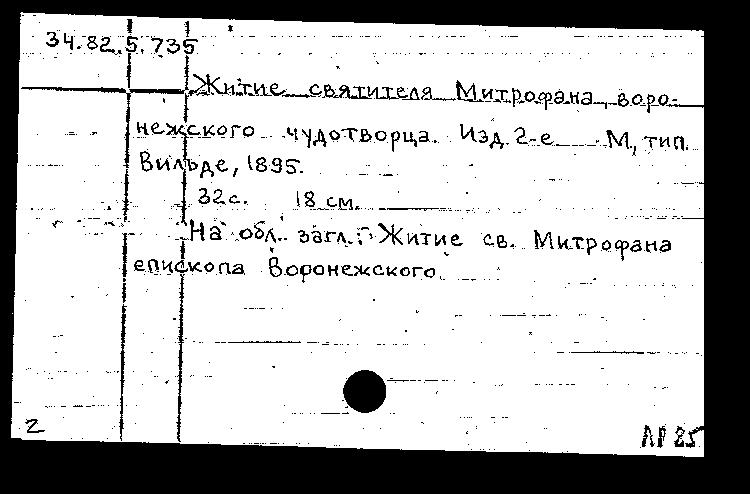 34.82.5.735
Житие святителя Митрофана, воро-
нежского чудотворца. Изд. 2-е М., тип.
Вильде, 1895.
32 с. 18 см.
На обл. загл.: Житие св. Митрофана
епископа Воронежского.
2
ЛП 85